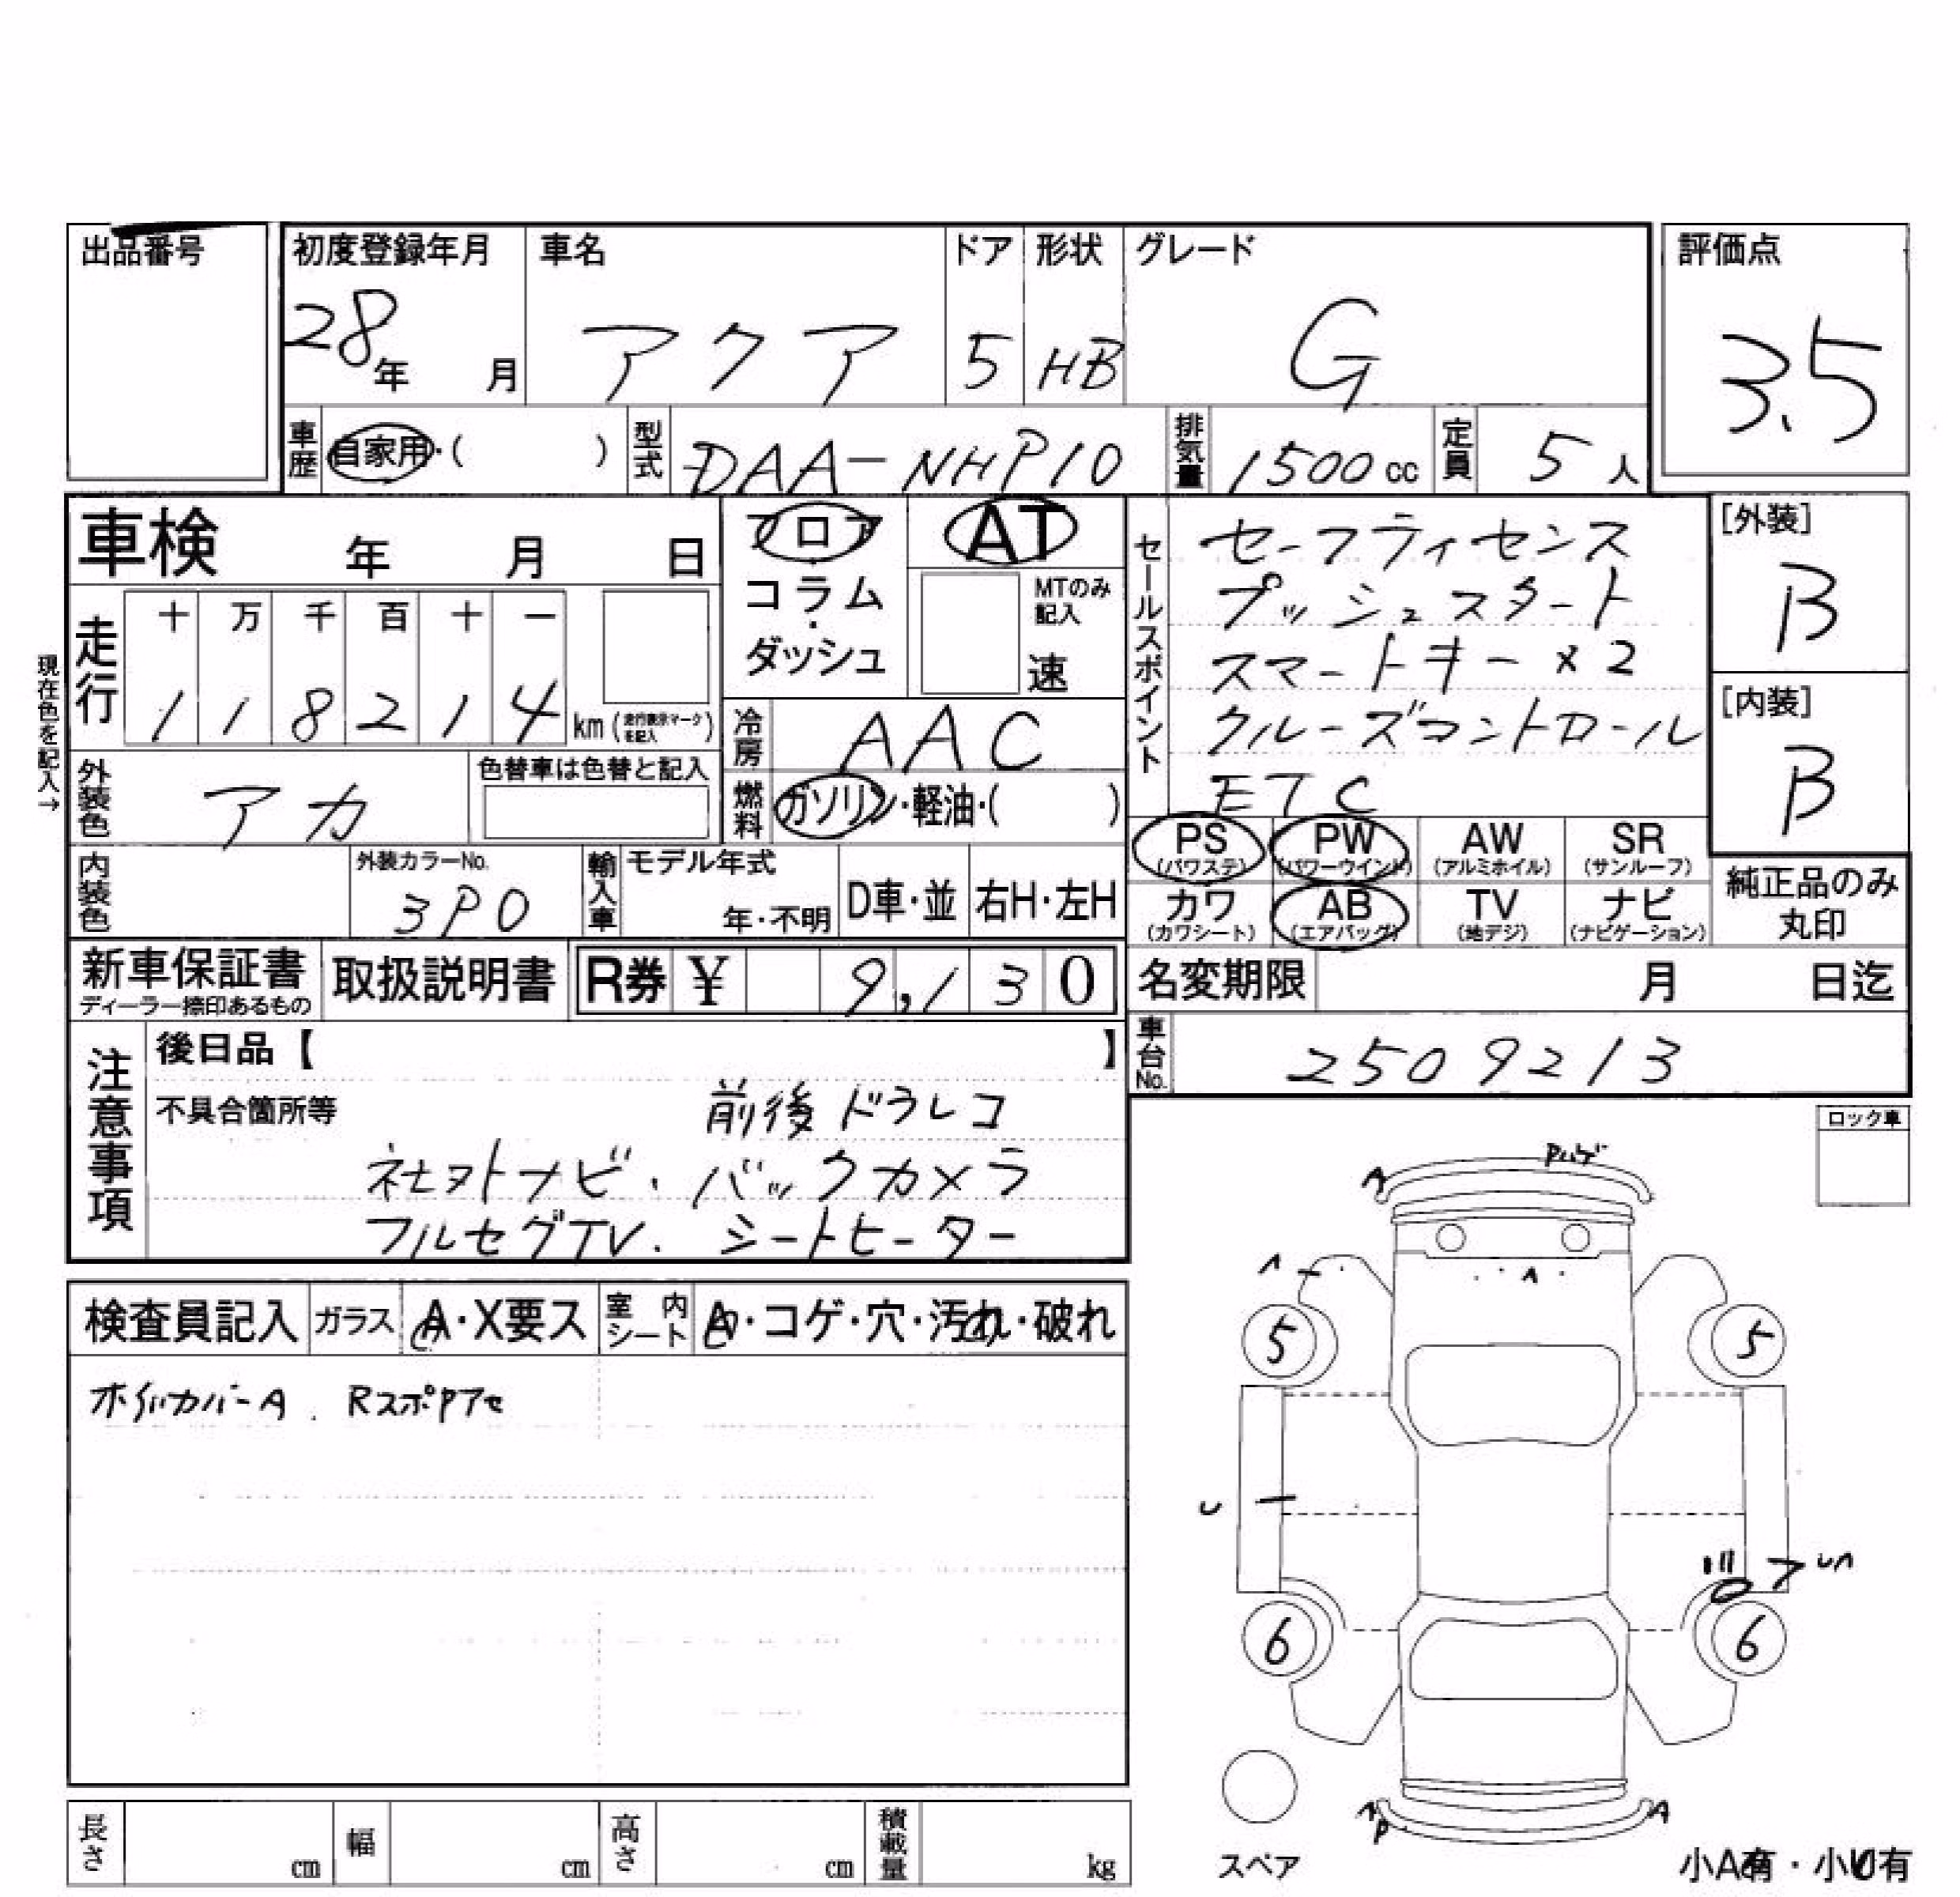 出品番号
初度登録年月 車名 ドア 形状 グレード 評価点
28年 月 アクア 5 HB G 3.5
車歴 自家用・( ) 型式 DAA-NHP10 排気量 1500cc 定員 5人
車検 年 月 日
フロア AT
コラム・ダッシュ
MTのみ記入
速
セールスポイント
セーフティセンス
プッシュスタート
スマートキー×2
クルーズコントロール
ETC
[外装]
B
[内装]
B
現在色を記入→
走行 十 万 千 百 十 一
1 1 8 2 1 4 km (走行表示マークを記入)
冷房 AAC
外装色 アカ 色替車は色替と記入
燃料 ガソリン・軽油・( )
PS (パワステ) PW (パワーウインド) AW (アルミホイル) SR (サンルーフ)
カワ (カワシート) AB (エアバッグ) TV (地デジ) ナビ (ナビゲーション)
純正品のみ
丸印
内装色 外装カラーNo. 3P0 輸入車 モデル年式 年・不明 D車・並 右H・左H
新車保証書 ディーラー捺印あるもの 取扱説明書 R券 ¥ 9,130
名変期限 月 日迄
車台No. 2509213
注意事項
後日品【 】
不具合箇所等 前後ドラレコ
社外ナビ・バックカメラ
フルセグTV. シートヒーター
ロック車
検査員記入 ガラス A・X要ス 室内シート A・コゲ・穴・汚れ・破れ
ホイルカバーA. RスポPアセ
A Pハゲ
A A
5 5
U
6 6
A
P
スペア
小A有・小U有
長さ cm 幅 cm 高さ cm 積載量 kg